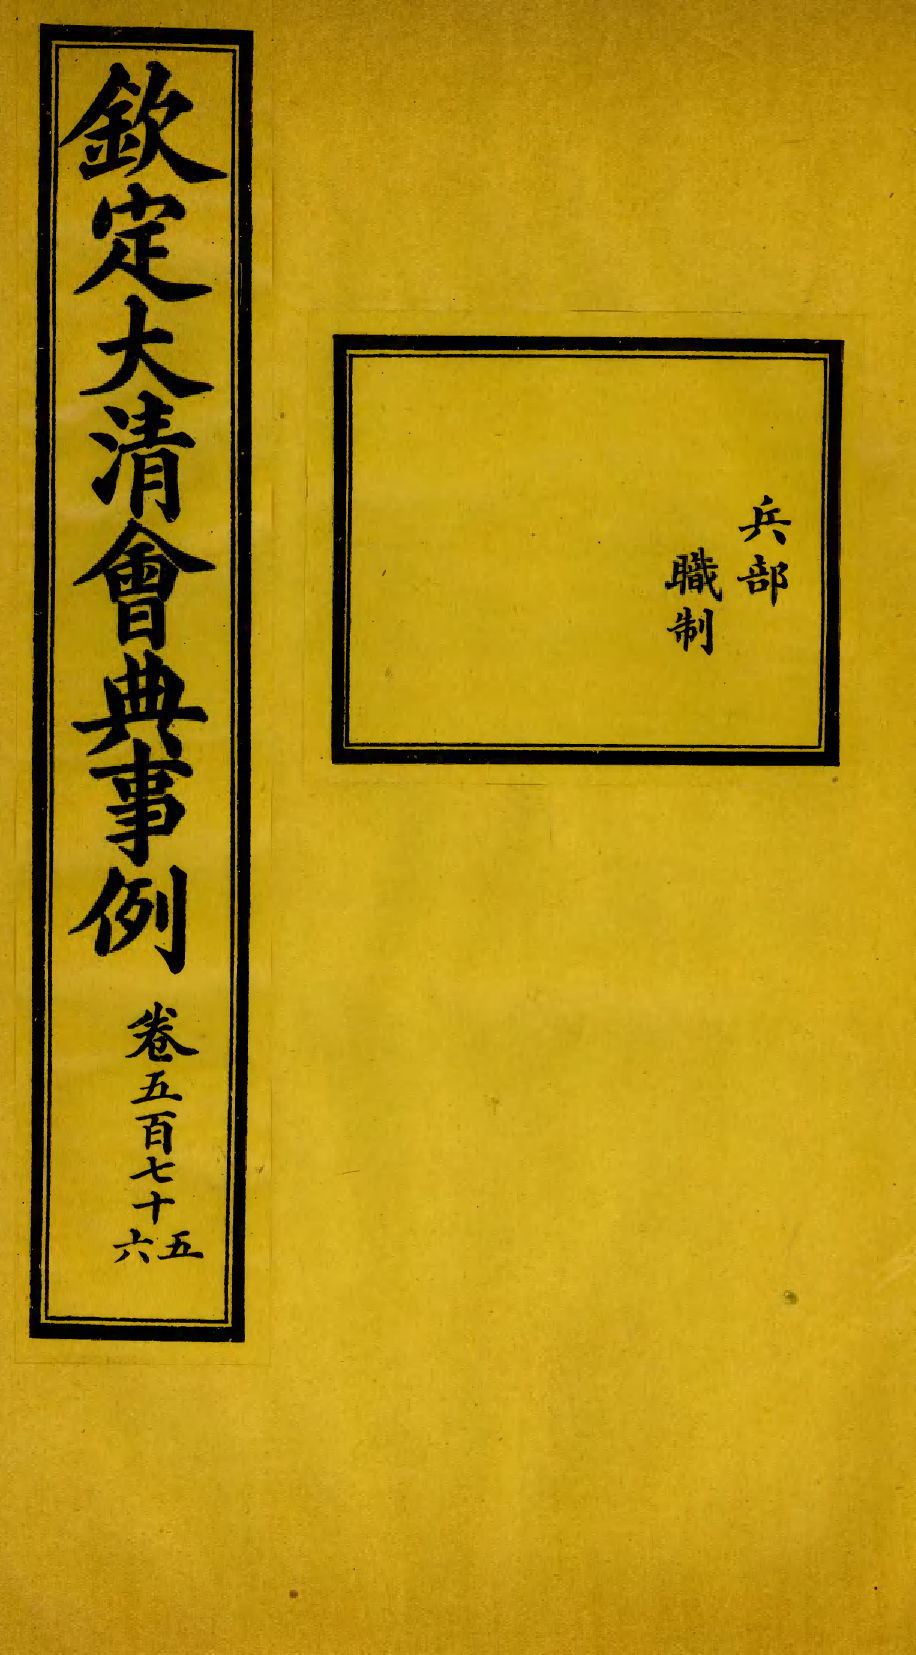 兵部
職制
欽定大清會典事例
卷五百七十五
六